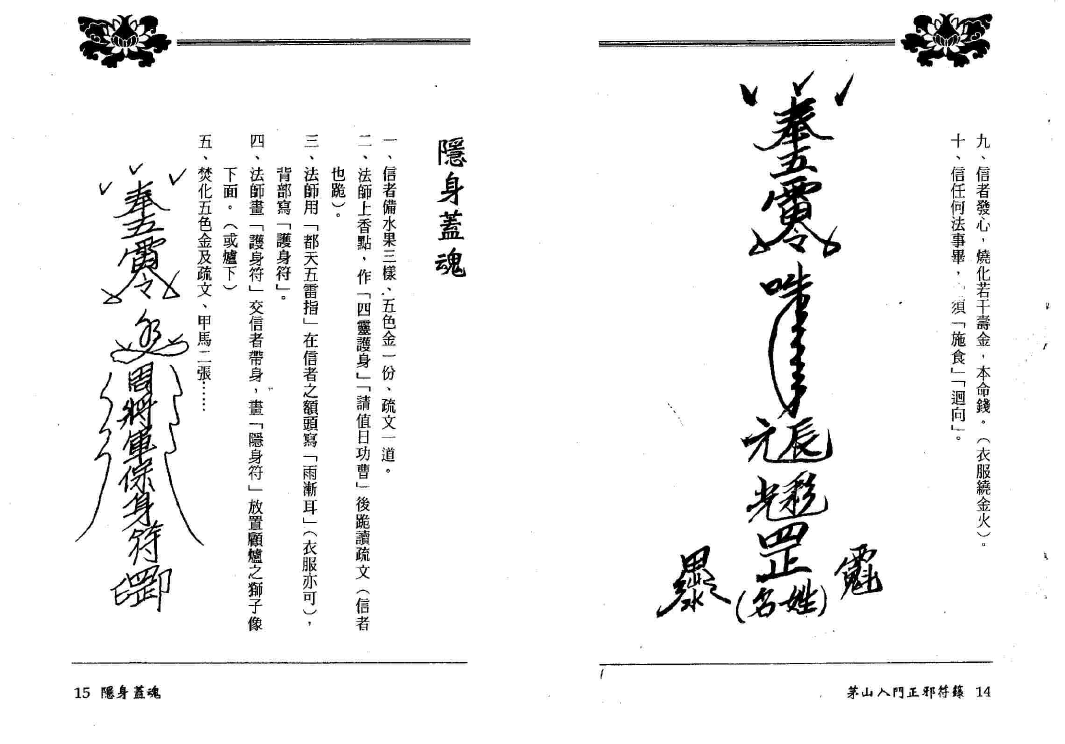 九、信者發心，燒化若干壽金，本命錢。（衣服繞金火）。
十、信任何法事畢，須「施食」「迴向」。
奉
五
元辰
光彩
罡
(名姓)
茅山入門正邪符籙 14
隱身蓋魂
一、信者備水果三樣、五色金一份、疏文一道。
二、法師上香點，作「四靈護身」「請值日功曹」後跪讀疏文（信者
也跪）。
三、法師用「都天五雷指」在信者之額頭寫「雨漸耳」（衣服亦可），
背部寫「護身符」。
四、法師畫「護身符」交信者帶身，畫「隱身符」放置顧爐之獅子像
下面。（或爐下）
五、焚化五色金及疏文、甲馬二張……
奉
五
周將軍保身符
15 隱身蓋魂